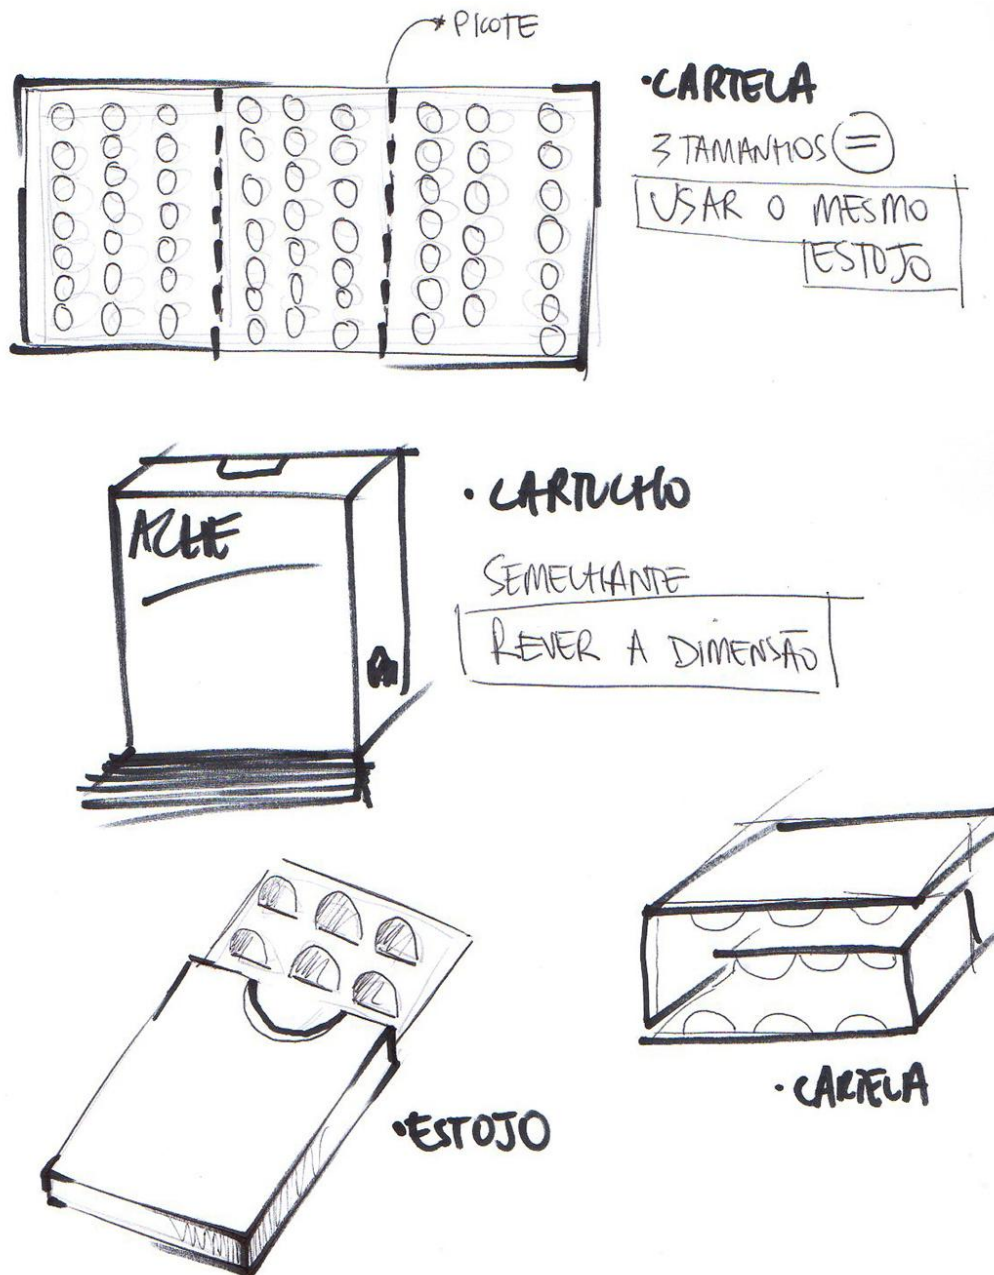 PICOTE
•CARTELA
3 TAMANHOS =
USAR O MESMO
ESTOJO
ACHE
•CARTUCHO
SEMELHANTE
REVER A DIMENSÃO
•ESTOJO
•CARTELA